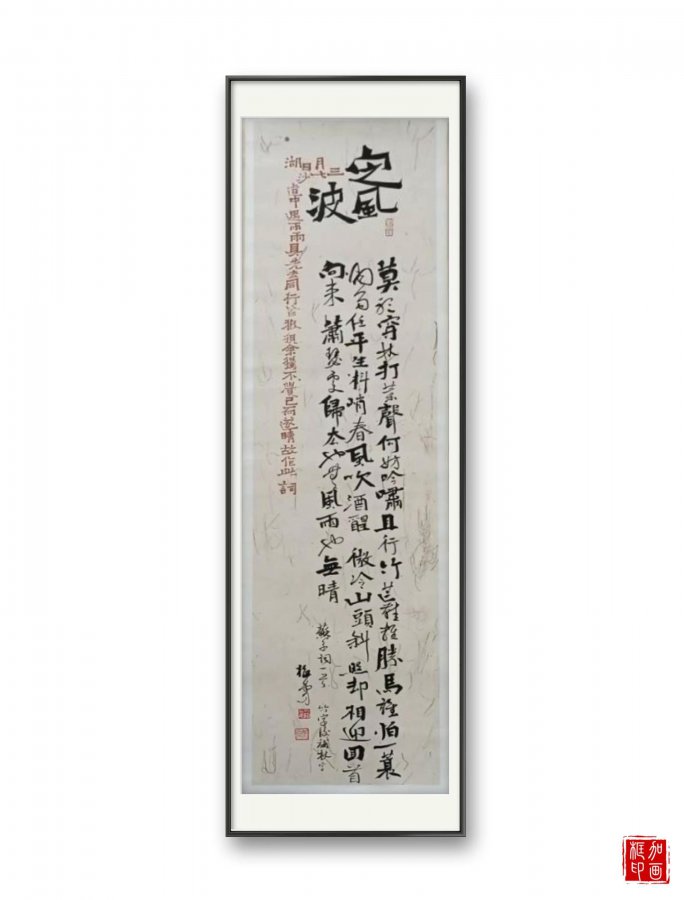 定風
波
三月七日沙湖
道中遇雨雨具先去同行皆狼狽余獨不覺已而遂晴故作此詞
莫穿林打葉聲何妨吟嘯且行竹芒鞋輕勝馬誰怕一蓑
烟雨任平生料峭春風吹酒醒微冷山頭斜照却相迎回首
向来蕭瑟處歸去也無風雨也無晴
蘇子詞一首 竹字後補杖字
加画
框印